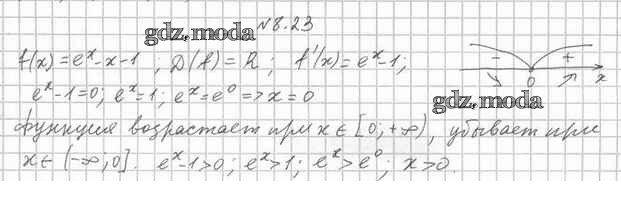 №8.23
gdz.moda
f(x)=e^x-x-1 ; D(f)=R ; f'(x)=e^x-1 ;
- +
0 x
e^x-1=0; e^x=1; e^x=e^0 => x=0
gdz.moda
Функция возрастает при x∈[0;+∞), убывает при
x∈(-∞;0]. e^x-1>0; e^x>1; e^x>e^0; x>0.